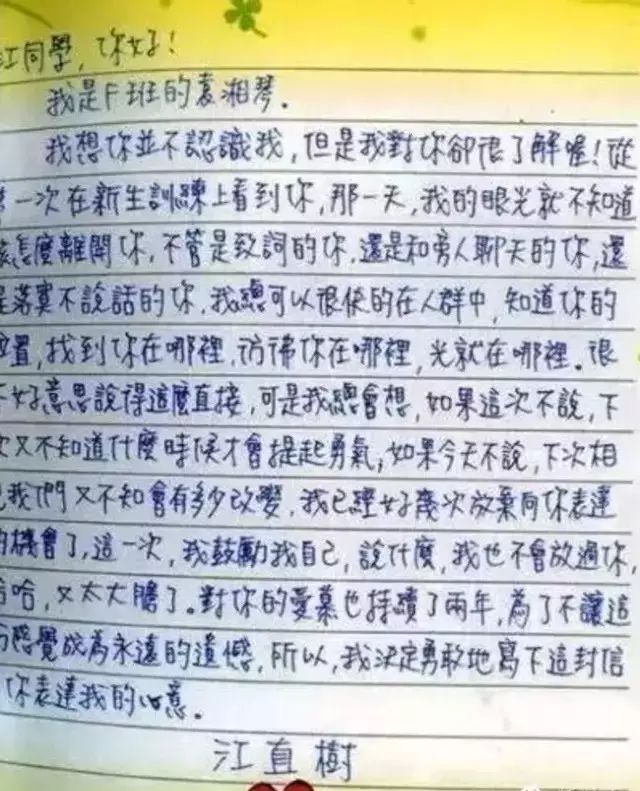 江同學，你好！
我是F班的袁湘琴。
我想你並不認識我，但是我對你卻很了解喔！從
第一次在新生訓練上看到你，那一天，我的眼光就不知道
該怎麼離開你，不管是致詞的你，還是和旁人聊天的你，還
是落寞不說話的你，我總可以很快的在人群中，知道你的
位置，找到你在哪裡，彷彿你在哪裡，光就在哪裡。很
不好意思說得這麼直接，可是我總會想，如果這次不說，下
次又不知道什麼時候才會提起勇氣，如果今天不說，下次相
見我們又不知會有多少改變，我已經好幾次放棄向你表達
的機會了，這一次，我鼓勵我自己，說什麼，我也不會放過你，
哈哈，又太大膽了。對你的愛慕也持續了兩年，為了不讓這
感覺成為永遠的遺憾，所以，我決定勇敢地寫下這封信
你表達我的心意。
江直樹